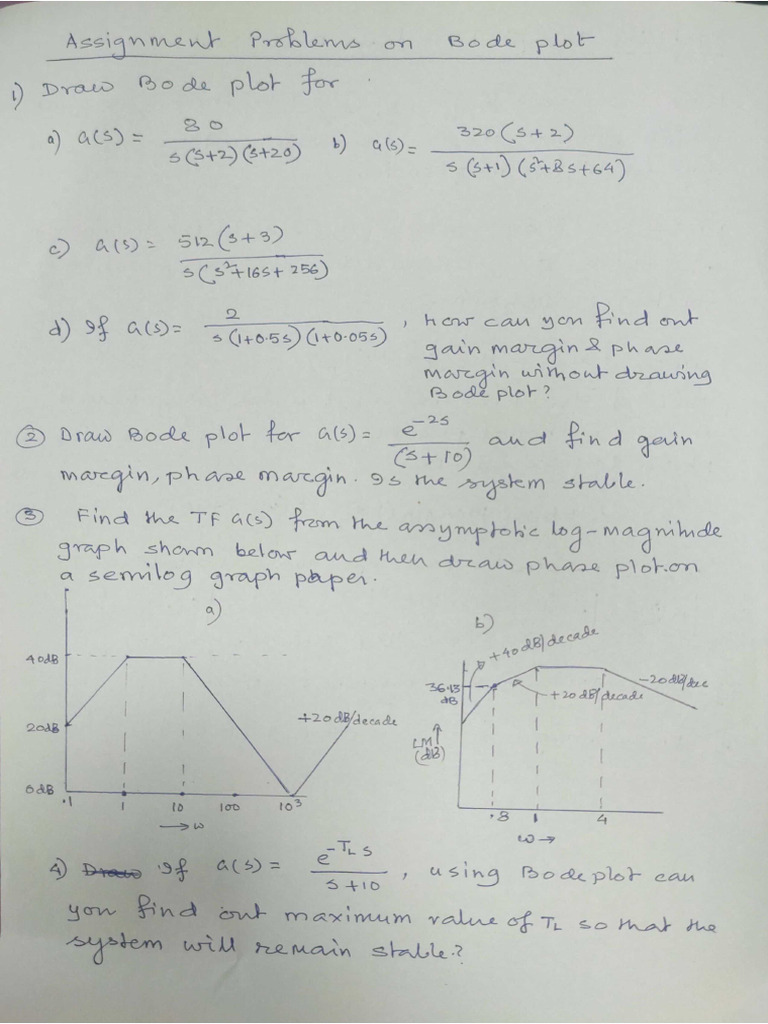 Assignment Problems on Bode plot
1) Draw Bode plot for
a) G(s) = 80 / s(s+2)(s+20) b) G(s) = 320(s+2) / s(s+1)(s²+8s+64)
c) G(s) = 512(s+3) / s(s²+16s+256)
d) If G(s) = 2 / s(1+0.5s)(1+0.05s) , how can you find out
gain margin & phase
margin without drawing
Bode plot?
② Draw Bode plot for G(s) = e^-2s / (s+10) and find gain
margin, phase margin. Is the system stable.
③ Find the TF G(s) from the assymptotic log-magnitude
graph shown below and then draw phase plot.on
a semilog graph paper.
a)
40dB
20dB
0dB
+20dB/decade
.1 1 10 100 10³
→ω
b)
+40dB/decade
36.13
dB
-20dB/dec
+20dB/decade
LM↑
(dB)
.8 1 4
ω→
4) Draw If G(s) = e^-T_L s / s+10 , using Bode plot can
you find out maximum value of T_L so that the
system will remain stable.?